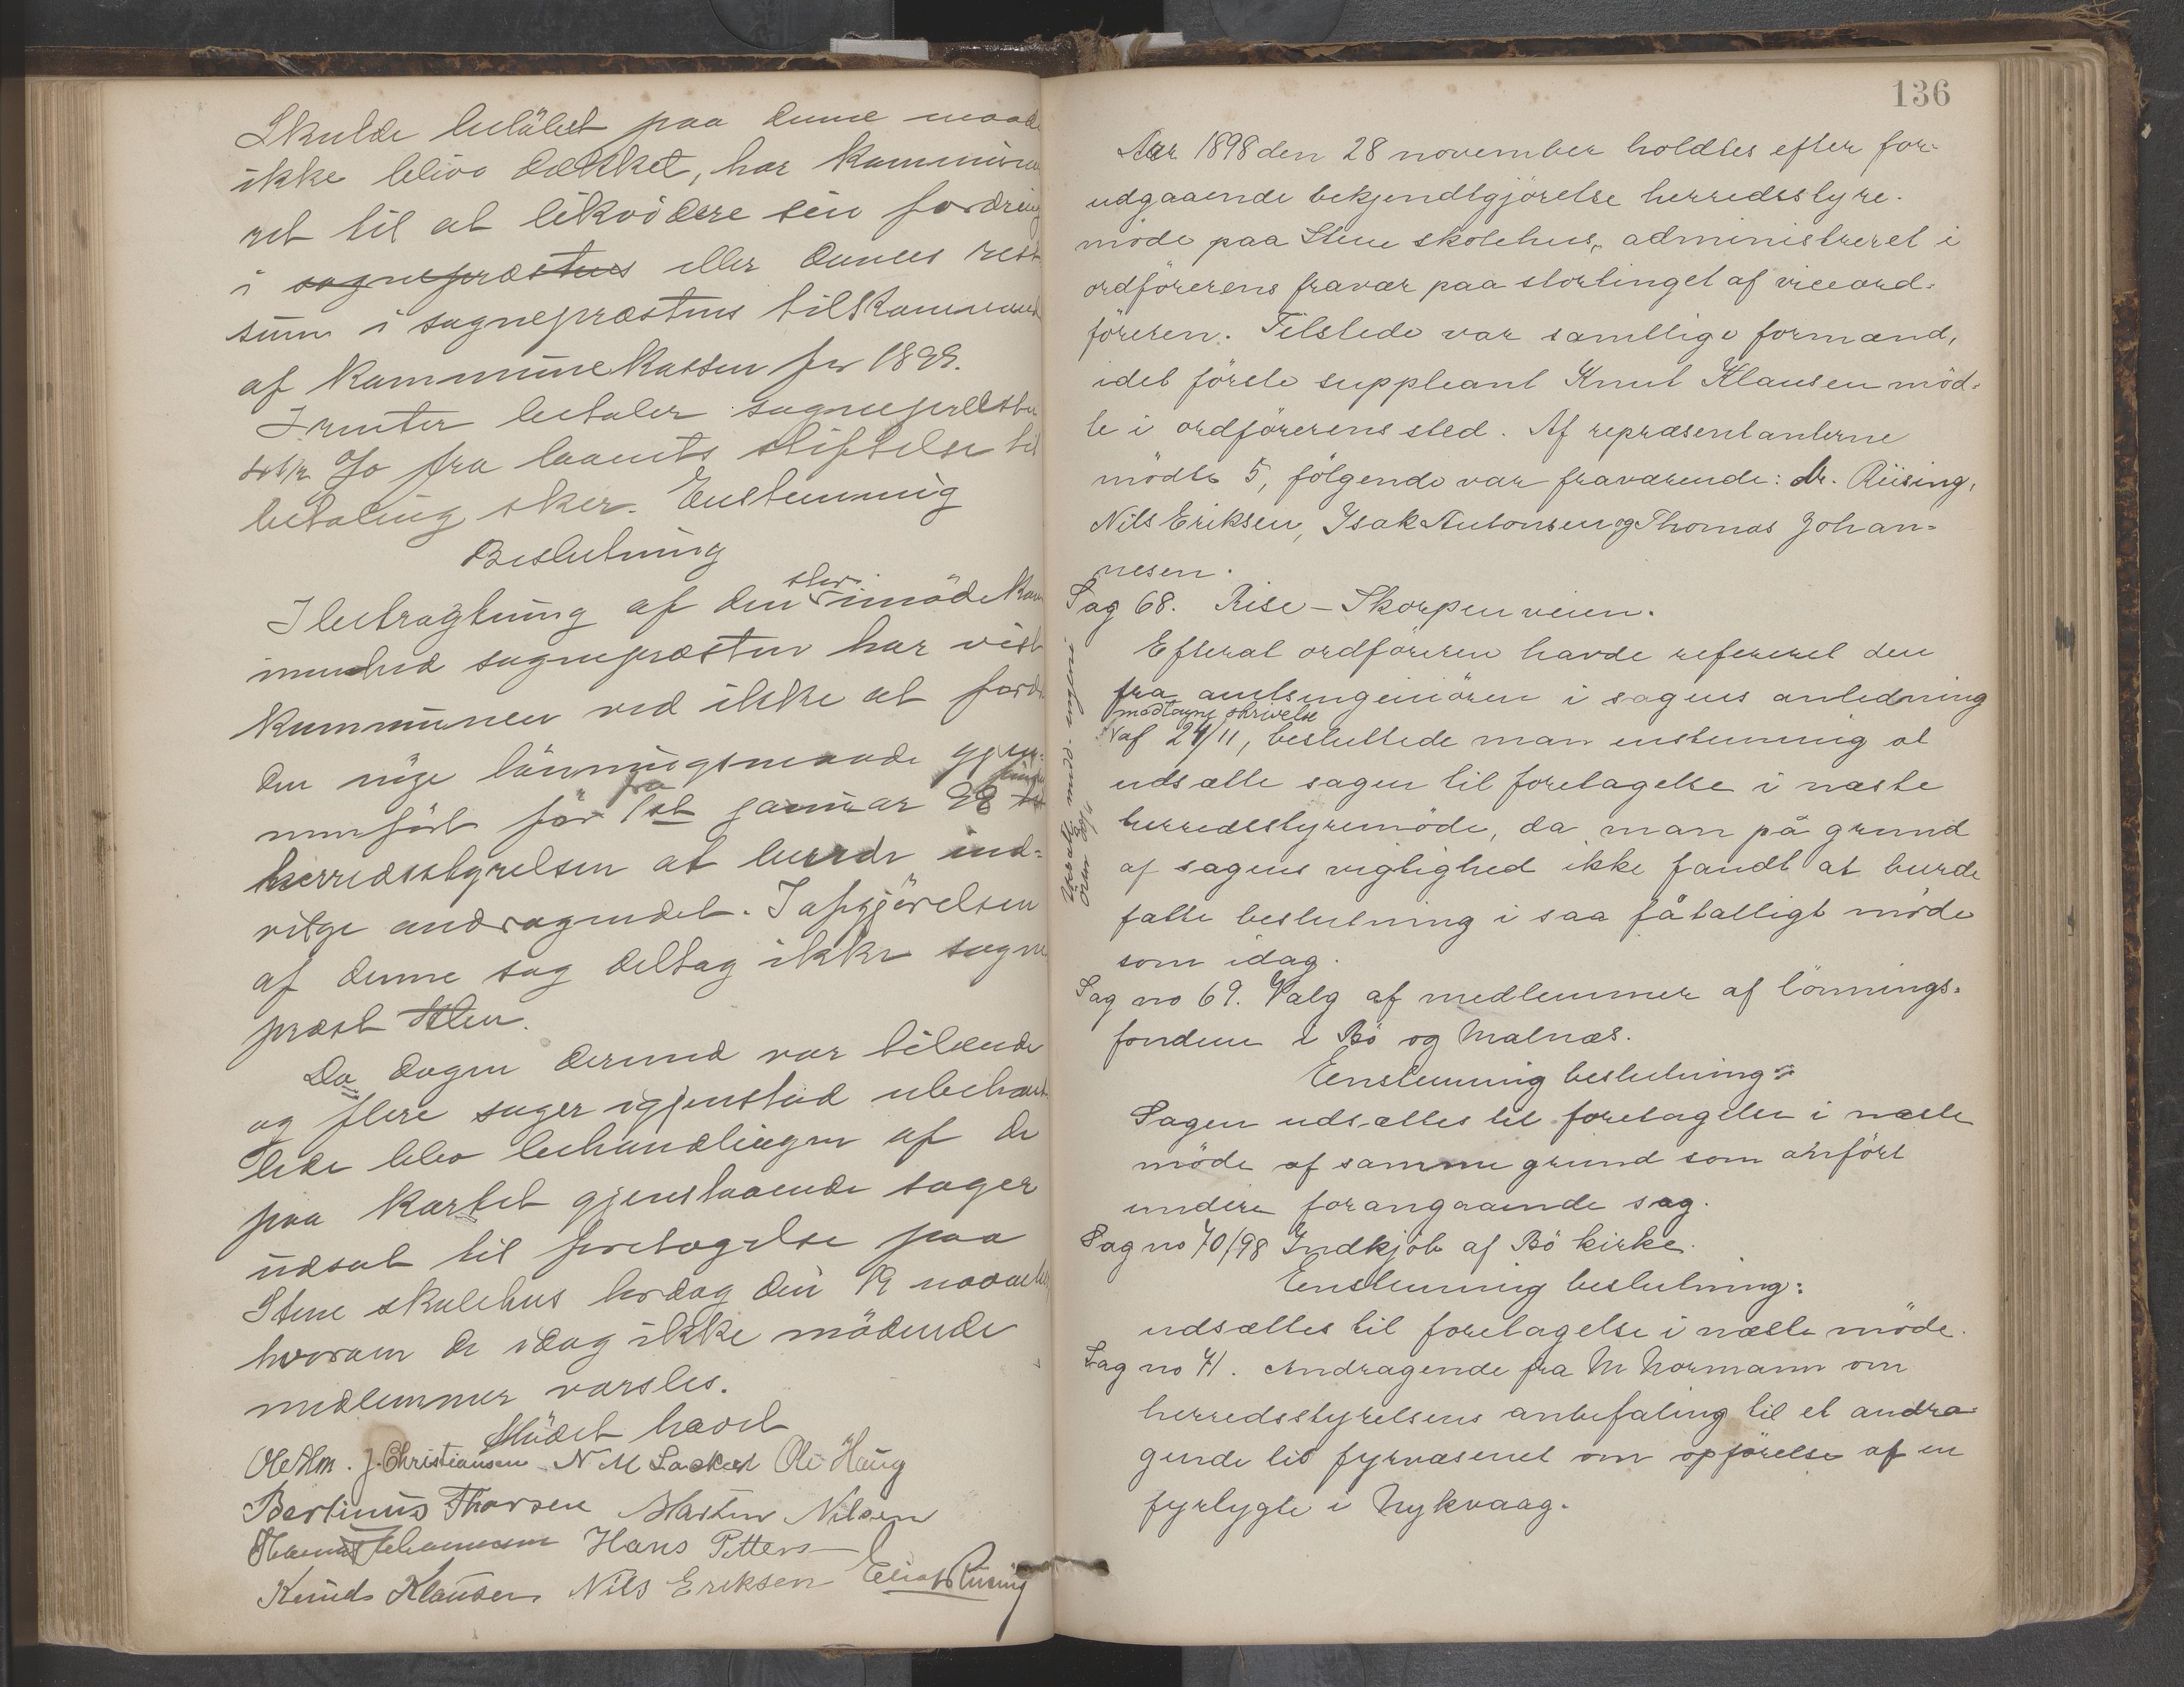 Skulde beløbet paa denne maade
ikke blive dækket, har kommunen
ret til at likvidere sin fordring
i sognepræstens eller dennes rest
sum i sognepræstens tilkommende
af kommunekassen for 1899.
I renter betaler sognepræsten
4 1/2 % fra laanets stiftelse til
betaling sker. Enstemmig
Beslutning
I betragtning af den store imødekom
menhed sognepræsten har vist
kommunen ved ikke at fordre
den nye lönningsmaade gjen-
nemført før fra 1st januar 98 finder
herredsstyrelsen at burde ind-
vilge andragendet. I afgjörelsen
af denne sag deltog ikke sogne
præst Alm.
Da dagen derved var tilende
og flere sager igjenstod ubehand
lede blev behandlingen af de
paa kartet gjenstaaende sager
udsat til foretagelse paa
Stene skolehus lørdag den 19 november
hvorom de idag ikke mødende
medlemmer varsles.
Mødet hævet
Ole Alm. J. Christiansen N M Ole Haug
Bertinus Thorsen Martin Nilsen
Johannesen Hans Petters
Knud Klausen Nils Eriksen Riising
136
Aar 1898 den 28 november holdtes efter for-
udgaaende bekjendtgjörelse herredsstyre-
möde paa Stene skolehus, administreret i
ordförerens fravær paa stortinget af viceord-
föreren. Tilstede var samtlige formænd,
idet förste suppleant Knut Klausen möd-
te i ordförerens sted. Af repræsentanterne
mödte 5, fölgende var fraværende: dr. Riising,
Nils Eriksen, Isak Antonsen og Thomas Johan-
nesen.
Sag 68. Rise – Skorpen veien.
Efterat ordföreren havde refereret den
fra amtsingeniören i sagens anledning
modtagne skrivelse
af 24/11, besluttede man enstemmig at
udsætte sagen til foretagelse i næste
herredsstyremöde, da man på grund
af sagens vigtighed ikke fandt at burde
fatte beslutning i saa fåtalligt möde
som idag.
Sag no 69. Valg af medlemmer af lönnings-
fondene i Bö og Malnæs.
Eenstemmig beslutning:
Sagen udsættes til foretagelse i næste
möde af samme grund som anfört
under forangaaende sag.
Sag no 70/98 Indkjöb af Bö kirke.
Eenstemmig beslutning:
udsættes til foretagelse i næste möde.
Sag no 71. Andragende fra M Normann om
herredsstyrelsens anbefaling til et andra-
gende til fyrvæsenet om opförelse af en
fyrlygte i Nykvaag.